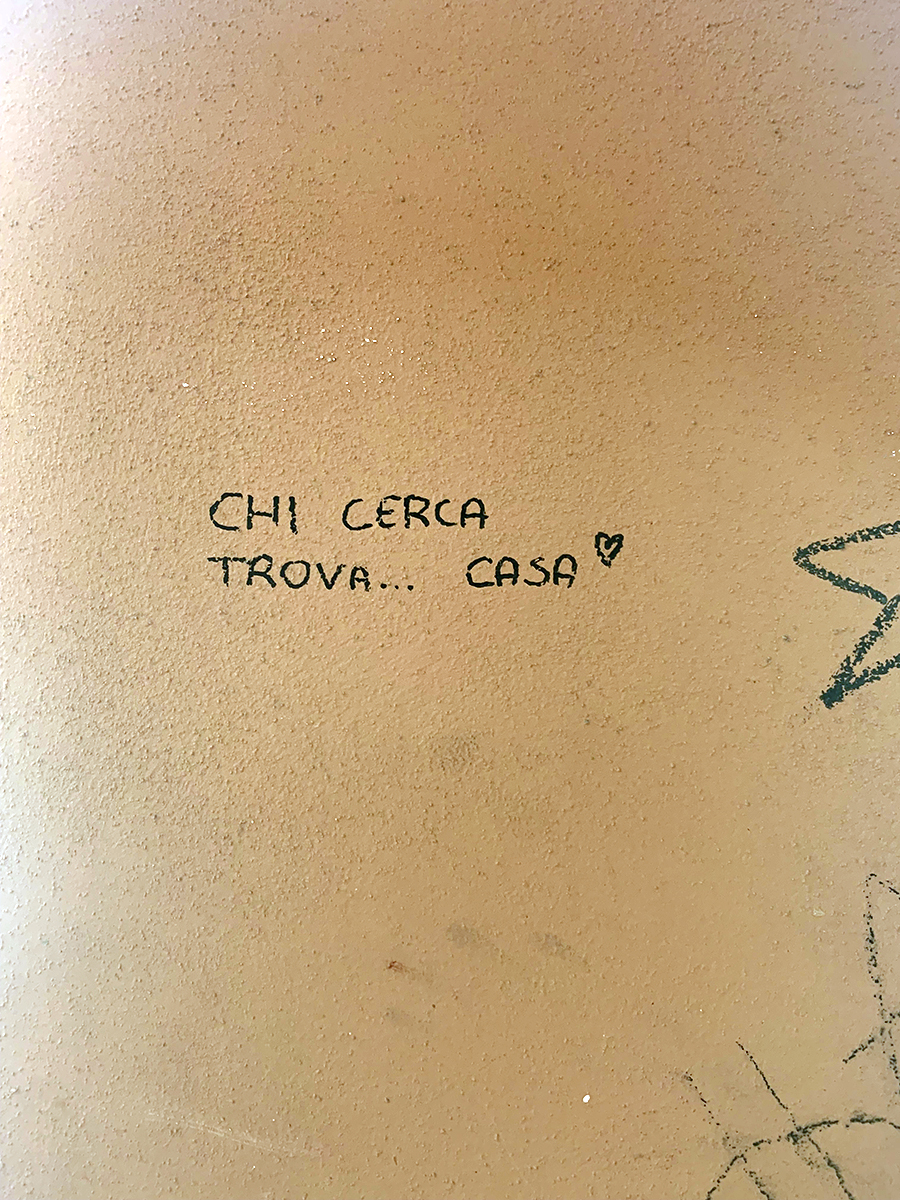 CHI CERCA
TROVA... CASA